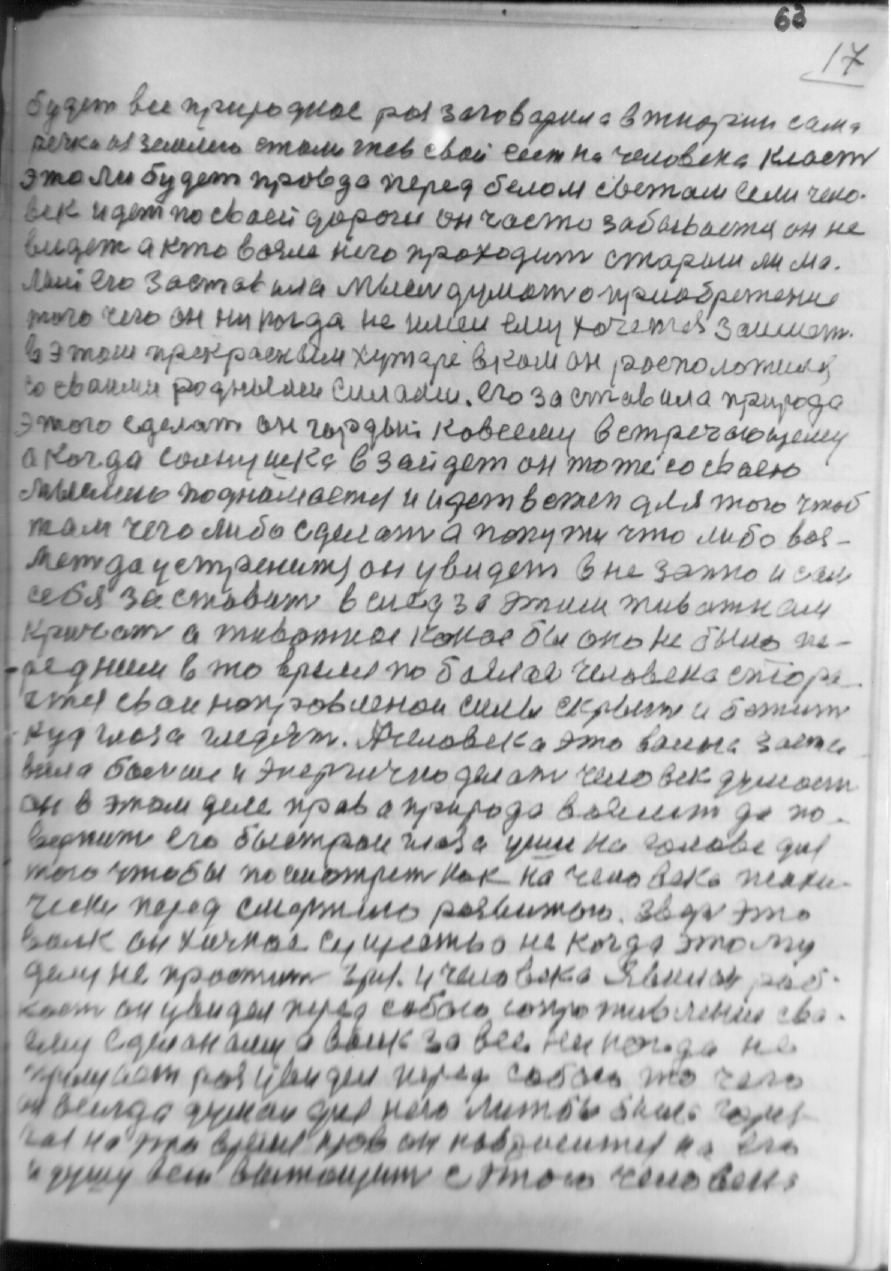 63
17
будет все природное раз заговарила в тнории сама
речка из землею стали гнев свой сест на человека класт
это ли будет правда перед белом светам если чело-
век идет по своей дароги он часто забывается он не
видет а кто возля него проходит старыи ли ма-
лыи его заставила мысл думат о приобретение
того чего он никогда не имел ему хочется занимат
в этом прекрасным хутаре в ком он расположился
со своими родными силами. его заставила природа
этого сделат он гордый ковсему встречающему
а когда солнушка взайдет он тоже со своею
мыслию поднимается и идет в степ для того чтоб
там чего либо сделат а попути что либо воз-
метда устренится он увидет внезапно и сам
себя заставит в след за этим животнам
кричат а животное какое бы оно не было пе-
редним в то время по боязле человека старае-
тся сваи направленои силы скрыт и бежит
куд глаза гледят. А человека это волна заста
вила болше и энергично делат человек думает
он в этом деле прав а природа возмет да по-
вернит его быстрои глаза уши на голове для
того чтобы посмотрет как на человека психи-
чески перед смертию развитою. звер это
волк он хичное существо не когда этому
делу не простит зря. и человека
он увидел перед собою сопротивления сво-
ему сделаному а волк за все ни когда не
раз увидел перед собою то чего
он всегда думал для него лишбы была
на это время он набросится на его
и душу всю вытащит с этого человека